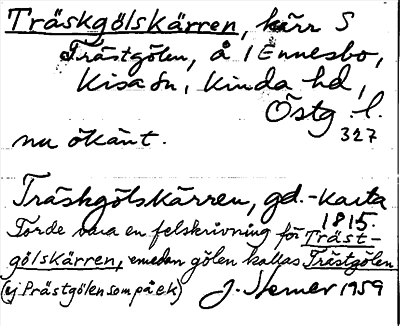 Träskgölskärren, kärr S
Trästgölen, å 1 Ennesbo,
Kisa sn, Kinda hd,
Östg. l.
327
nu okänt.
Träskgölskärren, gd.-karta
1815.
Torde vara en felskrivning för Träst-
gölskärren, emedan gölen kallas Trästgölen
(ej Prästgölen som på ek) J. Nerner 1959